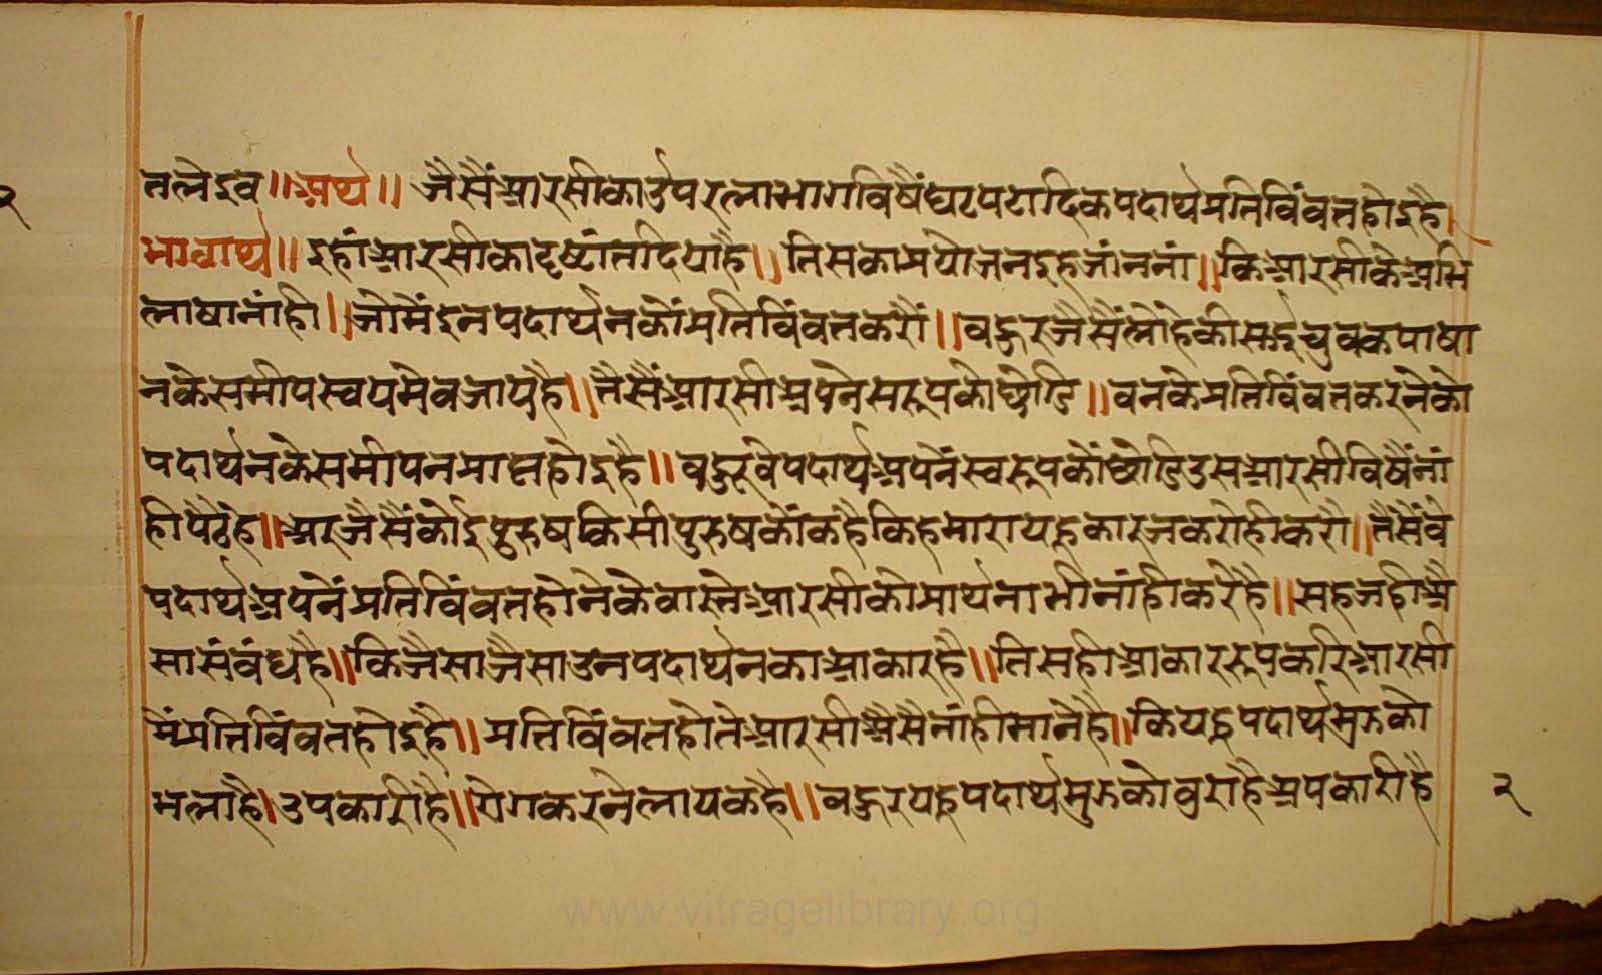 २
तलेइव॥अर्थ॥ जैसैंआरसीकाउपरलाभागविषैंघटपटादिकपदार्थप्रतिविंवतहोइहै।
भावार्थ॥इहांआरसीकादृष्टांतदियाहै॥तिसकाप्रयोजनइहजांननां॥किआरसीकेअभि
लाषानांही॥जोमेंइनपदार्थनकोंप्रतिविंवतकरौं॥वहुरजैसैंलोहेकीसूईचुवकपाषा
नकेसमीपस्वयमेवजायहै॥तैसैंआरसीअपनेसरूपकोछोडि॥वनकेप्रतिविंवतकरनेको
पदार्थनकेसमीपनप्राप्तहोइहै॥वहुरवेपदार्थअपनेंस्वरूपकोंछोडिउसआरसीविषैंनां
हीपैठेहे॥अरजैसैंकोईपुरुषकिसीपुरुषकोंकहैकिहमारायहकारजकरोहीकरौ॥तैसैंवे
पदार्थअपनेंप्रतिविंवतहोनेकेवास्तेआरसीकोप्रार्थनाभीनांहीकरेहै॥सहजहीअै
सासंवंधहै॥किजैसाजैसाउनपदार्थनकाआकारहै॥तिसहीआकाररूपकरिआरसी
मेंप्रतिविंवतहोइहै॥प्रतिविंवतहोतेआरसीअैसैनांहीमानेहै॥कियहपदार्थमुझको
भलाहै।उपकारीहै॥रागकरनेलायकहै॥वहुरयहपदार्थमुझकोवुराहैअपकारीहै
२
www.vitragelibrary.org